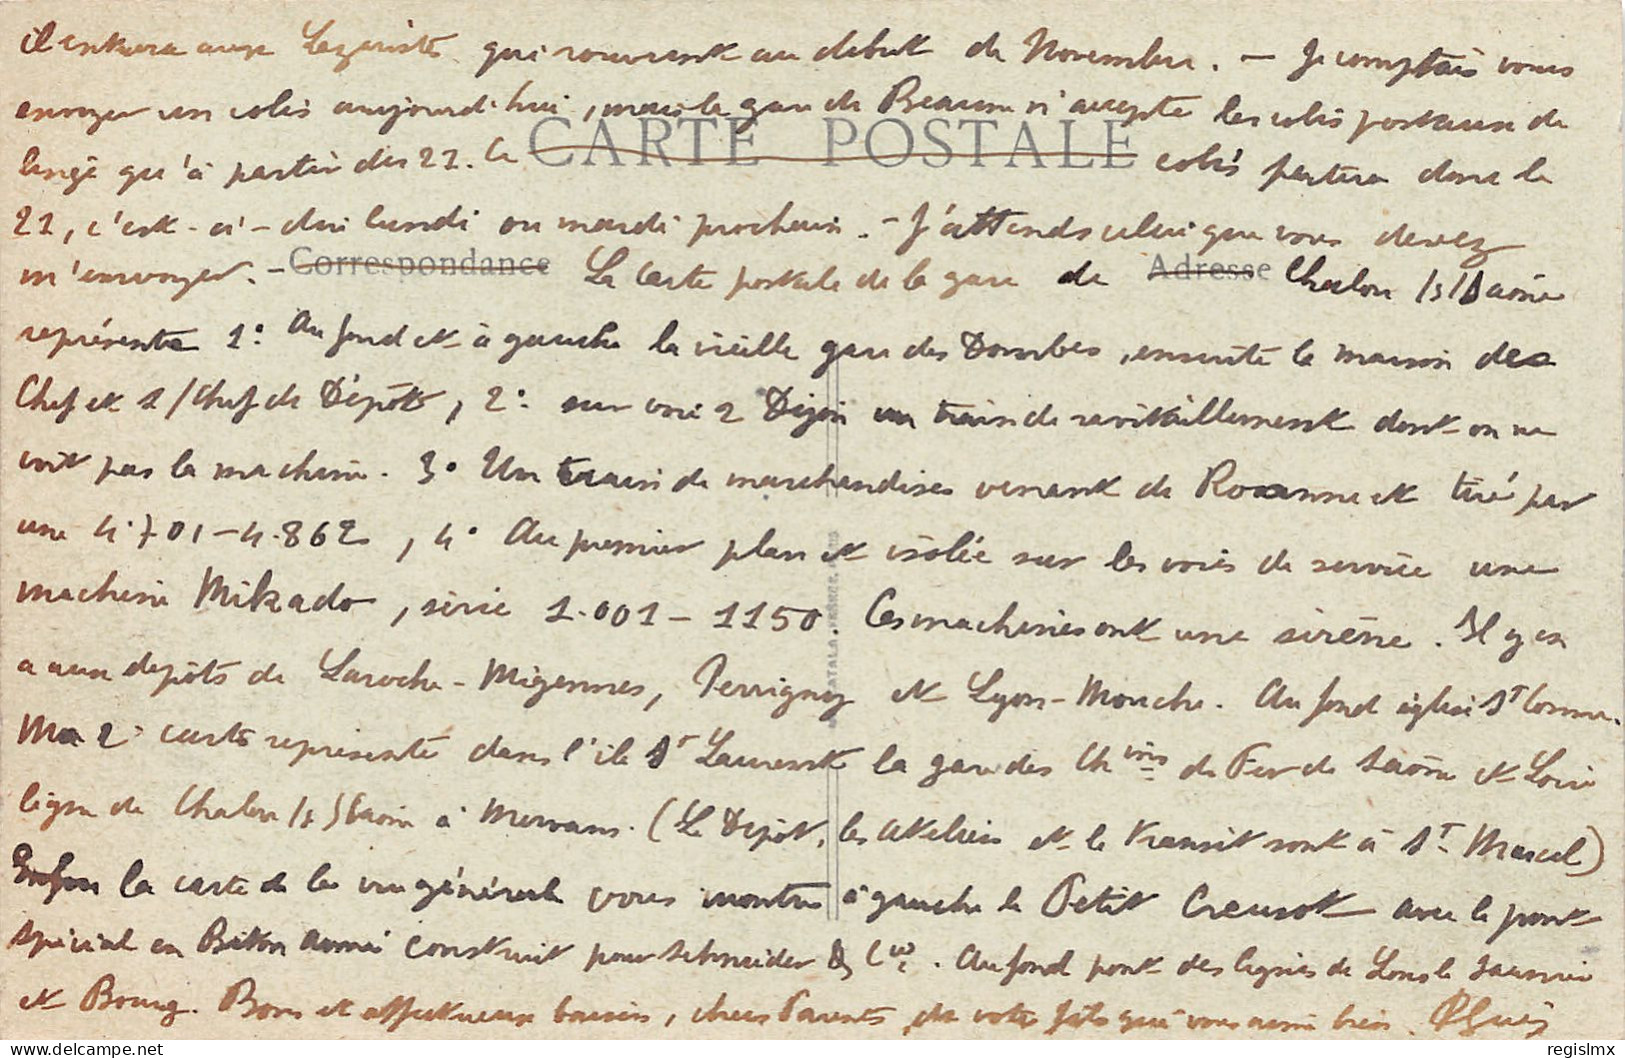 il entrera aux Lazariste qui rouvrent au début de Novembre. — Je comptais vous
envoyer un colis aujourd'hui, mais la gare de Beaune n'accepte les colis postaux de
linge qu'à partir des 21. Ce CARTE POSTALE colis partira donc le
21, c'est-à-dire lundi ou mardi prochain. — J'attends celui que vous devez
m'envoyer. — Correspondance La Carte postale de la gare de Adresse Chalon /s/ Saône
représente 1° Au fond et à gauche la vieille gare des Dombes, ensuite la maison des
Chef et S/Chef de Dépôt, 2° sur voie 2 Dijon un train de ravitaillement dont on ne
voit pas la machine. 3° Un train de marchandises venant de Roanne et tiré par
une 4.701-4.862, 4° Au premier plan et isolée sur les voies de service une
machine Mikado, série 1.001-1150. Ces machines ont une sirène. Il y en
a aux dépôts de Laroche-Migennes, Perrigny et Lyon-Mouche. Au fond église St Cosme.
Ma 2° carte représente dans l'île St Laurent la gare des Chins de Fer de Saône et Loire
ligne de Chalon /s/ Saône à Mervans. (Le Dépôt, les Ateliers et le transit sont à St Marcel)
Enfin la carte de la vue générale vous montre à gauche le Petit Creusot avec le pont
spécial en Béton armé construit pour Schneider & Cie. Au fond pont des lignes de Lons le Saunier
et Bourg. Bons et affectueux baisers, chers Parents, de votre fils qui vous aime bien.
regislmx
www.delcampe.net